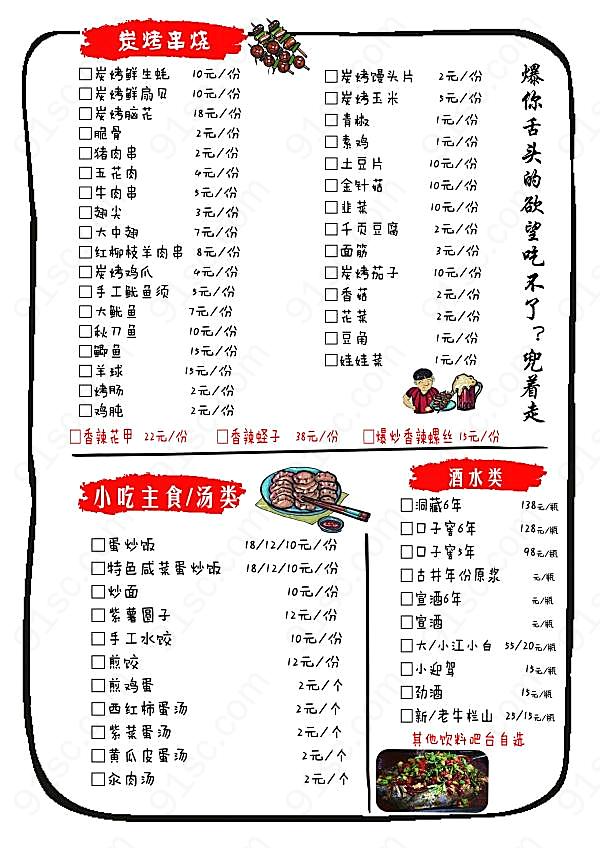 炭烤串烧
□炭烤鲜生蚝 10元/份
□炭烤鲜扇贝 10元/份
□炭烤脑花 18元/份
□脆骨 2元/份
□猪肉串 2元/份
□五花肉 4元/份
□牛肉串 5元/份
□翅尖 3元/份
□大中翅 7元/份
□红柳枝羊肉串 8元/份
□炭烤鸡爪 4元/份
□手工鱿鱼须 5元/份
□大鱿鱼 7元/份
□秋刀鱼 10元/份
□鲫鱼 15元/份
□羊球 15元/份
□烤肠 2元/份
□鸡肫 2元/份
□炭烤馒头片 2元/份
□炭烤玉米 5元/份
□青椒 1元/份
□素鸡 1元/份
□土豆片 10元/份
□金针菇 10元/份
□韭菜 10元/份
□千页豆腐 2元/份
□面筋 3元/份
□炭烤茄子 10元/份
□香菇 2元/份
□花菜 2元/份
□豆角 1元/份
□娃娃菜 1元/份
爆你舌头的欲望吃不了?兜着走
□香辣花甲 22元/份 □香辣蛏子 38元/份 □爆炒香辣螺丝 15元/份
小吃主食/汤类
□蛋炒饭 18/12/10元/份
□特色咸菜蛋炒饭 18/12/10元/份
□炒面 10元/份
□紫薯圆子 12元/份
□手工水饺 10元/份
□煎饺 12元/份
□煎鸡蛋 2元/个
□西红柿蛋汤 2元/个
□紫菜蛋汤 2元/个
□黄瓜皮蛋汤 2元/个
□汆肉汤 2元/个
酒水类
□洞藏6年 138元/瓶
□口子窖6年 128元/瓶
□口子窖5年 98元/瓶
□古井年份原浆 元/瓶
□宣酒6年 元/瓶
□宣酒 元/瓶
□大/小江小白 55/20元/瓶
□小迎驾 15元/瓶
□劲酒 15元/瓶
□新/老牛栏山 25/15元/瓶
其他饮料吧台自选
91sc.com